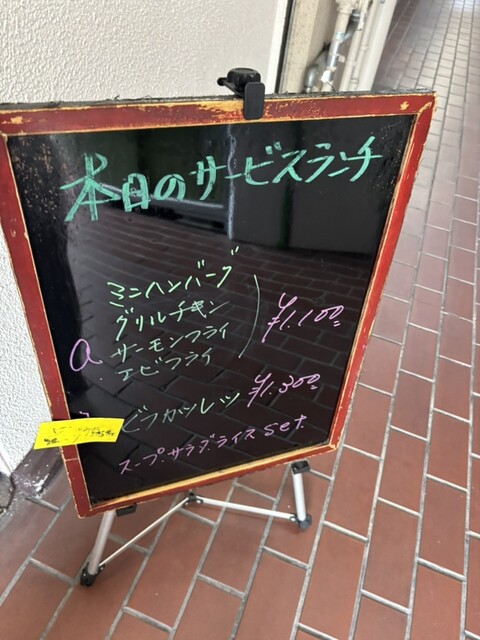 本日のサービスランチ
ミニハンバーグ
グリルチキン
a サーモンフライ
エビフライ
¥1.100
ビフカツレツ ¥1.300
スープ.サラダ.ライス set.